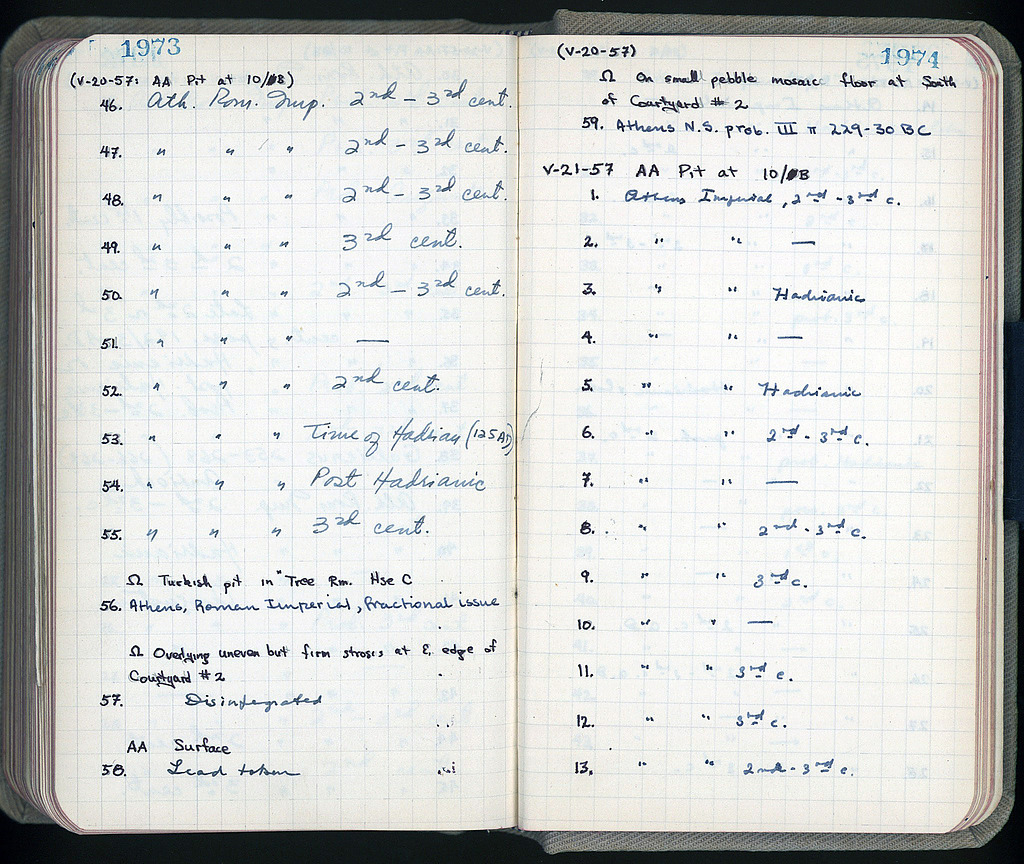 1973
(V-20-57: AA Pit at 10/ΙB)
46. Ath. Rom. Imp. 2nd – 3rd cent.
47. " " " 2nd – 3rd cent.
48. " " " 2nd – 3rd cent.
49. " " " 3rd cent.
50. " " " 2nd – 3rd cent.
51. " " " —
52. " " " 2nd cent.
53. " " " Time of Hadrian (125 AD)
54. " " " Post Hadrianic
55. " " " 3rd cent.
Ω Turkish pit in "Tree Rm. Hse C
56. Athens, Roman Imperial, fractional issue
Ω Overlying uneven but firm strosis at E. edge of
Courtyard #2
57. Disintegrated
AA Surface
58. Lead token
(V-20-57)
1974
Ω On small pebble mosaic floor at South
of Courtyard #2
59. Athens N.S. prob. III π 229-30 BC
V-21-57 AA Pit at 10/ΙB
1. Athens Imperial, 2nd - 3rd c.
2. " " —
3. " " Hadrianic
4. " " —
5. " " Hadrianic
6. " " 2nd - 3rd c.
7. " " —
8. " " 2nd - 3rd c.
9. " " 3rd c.
10. " " —
11. " " 3rd c.
12. " " 3rd c.
13. " " 2nd - 3rd c.